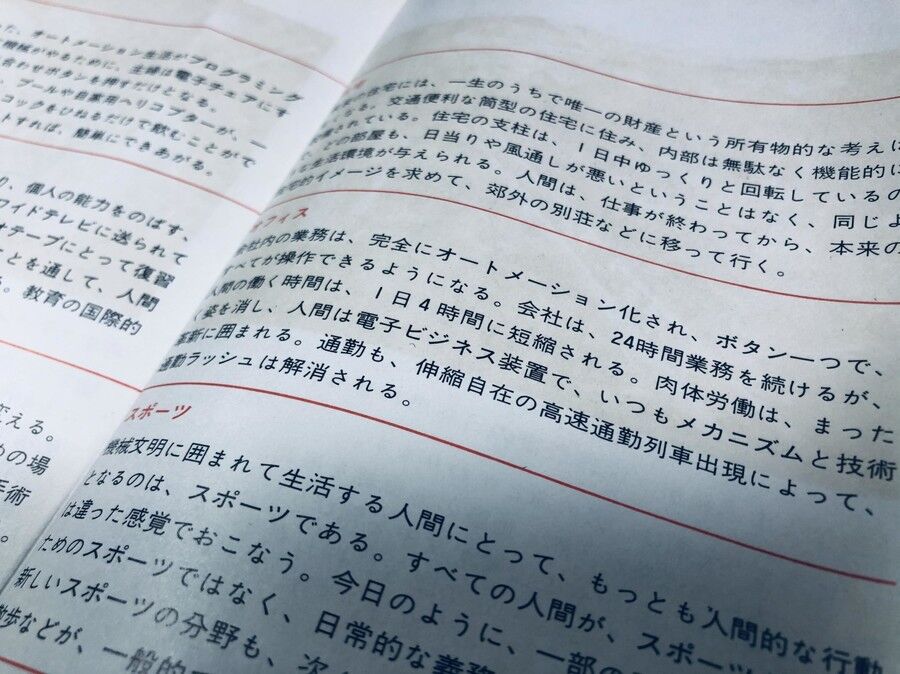 た、オートメーション生活がプログラミング
機械がやるために、主婦は電子チェアにす
合わせボタンを押すだけとなる。
プールや自家用ヘリコプターが、一
コックをひねるだけで飲むことがで
トすれば、簡単にできあがる。
り、個人の能力をのばす、
ワイドテレビに送られて
オテープにとって復習
ことを通して、人間
る。教育の国際的
変える。
めの場
手術
住宅には、一生のうちで唯一の財産という所有物的な考えは
る。交通便利な筒型の住宅に住み、内部は無駄なく機能的に
されている。住宅の支柱は、1日中ゆっくりと回転しているの
どの部屋も、日当りや風通しが悪いということはなく、同じよ
生活環境が与えられる。人間は、仕事が終わってから、本来の
宅的イメージを求めて、郊外の別荘などに移って行く。
フィス
会社内の業務は、完全にオートメーション化され、ボタン一つで、
すべてが操作できるようになる。会社は、24時間業務を続けるが、
人間の働く時間は、1日4時間に短縮される。肉体労働は、まった
姿を消し、人間は電子ビジネス装置で、いつもメカニズムと技術
革新に囲まれる。通勤も、伸縮自在の高速通勤列車出現によって、
通勤ラッシュは解消される。
スポーツ
機械文明に囲まれて生活する人間にとって、もっとも人間的な行動
となるのは、スポーツである。すべての人間が、スポーツ
は違った感覚でおこなう。今日のように、一部の
ためのスポーツではなく、日常的な義務
新しいスポーツの分野も、次
散歩などが、一般的